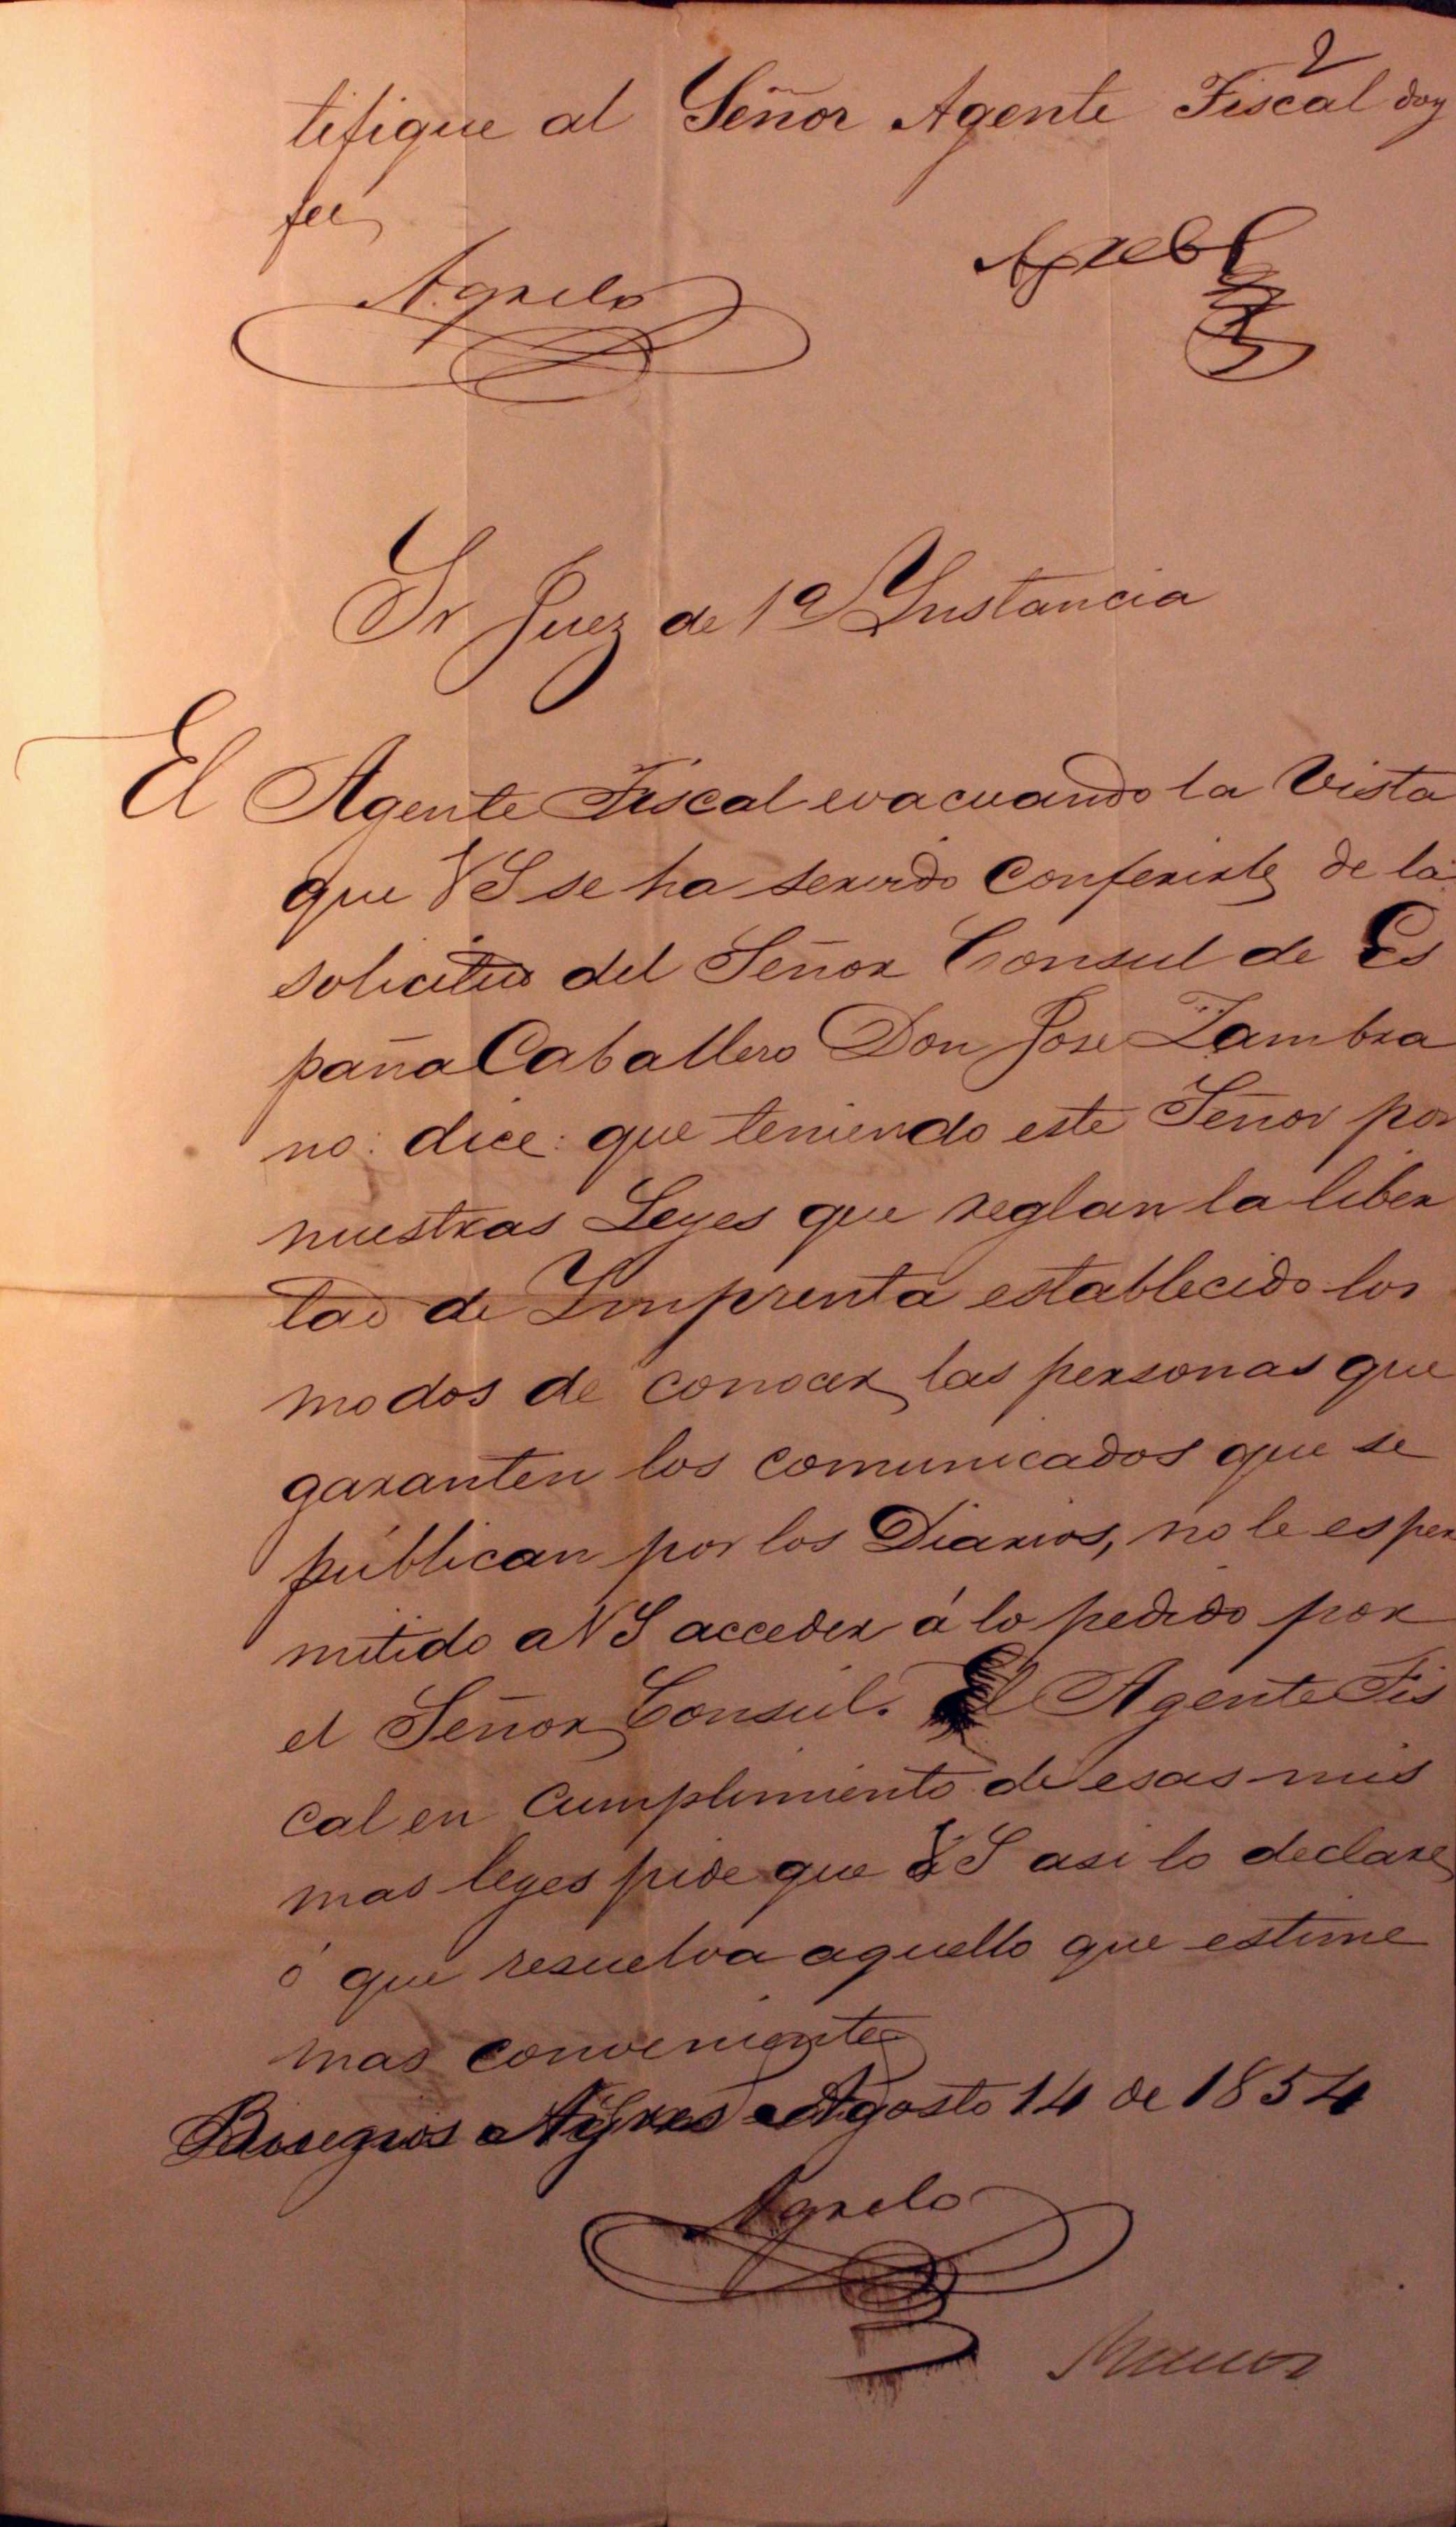 2
tifique al Señor Agente Fiscal doy
fee
Agrelo
Sr Juez de 1a Instancia
El Agente Fiscal evacuando la Vista
que VS se ha servido conferirle de la
solicitud del Señor Consul de Es
paña Caballero Don Jose Zambra
no: dice: que teniendo este Señor por
nuestras Leyes que reglan la liber
tad de Imprenta establecido los
modos de conocer las personas que
garanten los comunicados que se
públican por los Diarios, no le es per
mitido a VS acceder á lo pedido por
el Señor Consul. El Agente Fis
cal en cumplimiento de esas mis
mas leyes pide que VS asi lo declare
ó que resuelva aquello que estime
mas conveniente
Buenos Ayres Agosto 14 de 1854
Agrelo